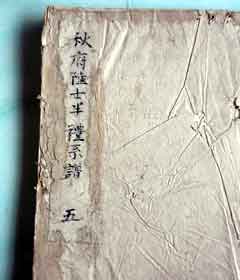 秋府陸士半禮系譜 五